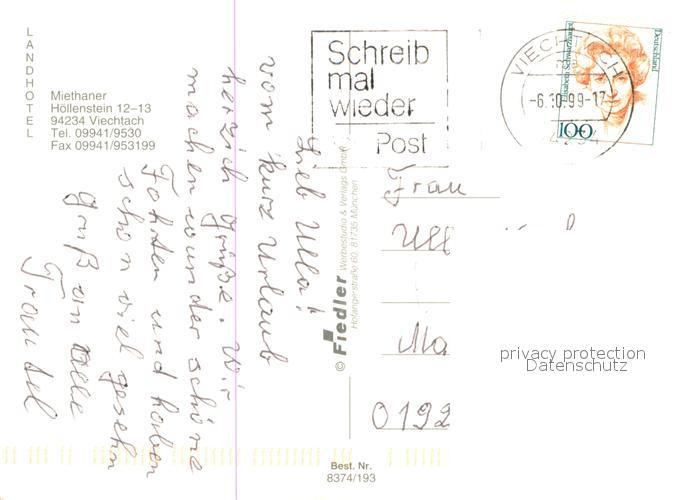 LANDHOTEL
Miethaner
Höllenstein 12–13
94234 Viechtach
Tel. 09941/9530
Fax 09941/953199
Schreib
mal
wieder
Post
VIECHTACH
-6.10.99-17
94234
Deutschland
Elisabeth Schwarzhaupt
100
Lieb Ulla!
vom kurz Urlaub
herzich grüße. Wir
machen wunder schöne
Fahrten und haben
schon viel gesehn
gruß an alle
Traudel
© Fiedler Werbestudio & Verlags GmbH
Hofangerstraße 60, 81735 München
Frau
Ull
Ma
0192
privacy protection
Datenschutz
Best. Nr.
8374/193